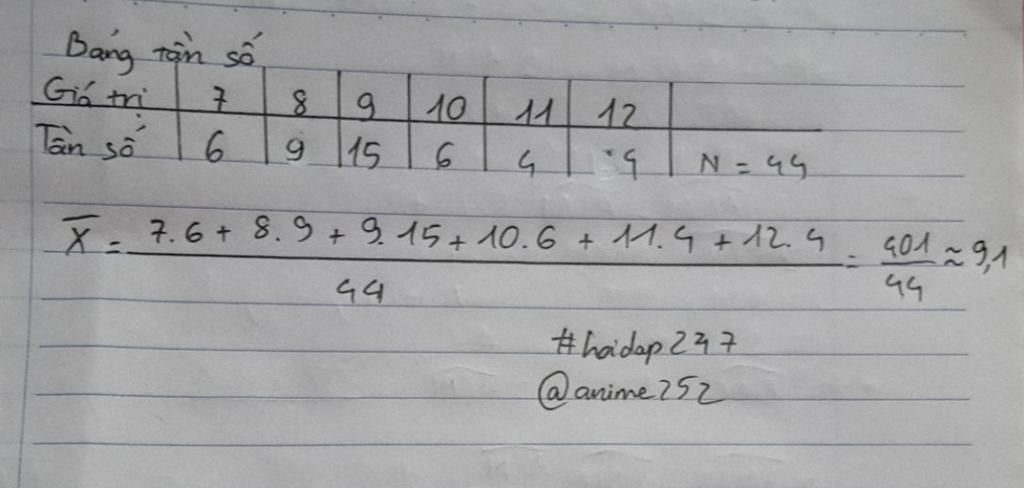 Bảng tần số
Giá trị 7 8 9 10 11 12
Tần số 6 9 15 6 4 4 N = 44
X̅ = 7.6 + 8.9 + 9.15 + 10.6 + 11.4 + 12.4 / 44 = 401/44 ≈ 9,1
#hoidap247
@anime252